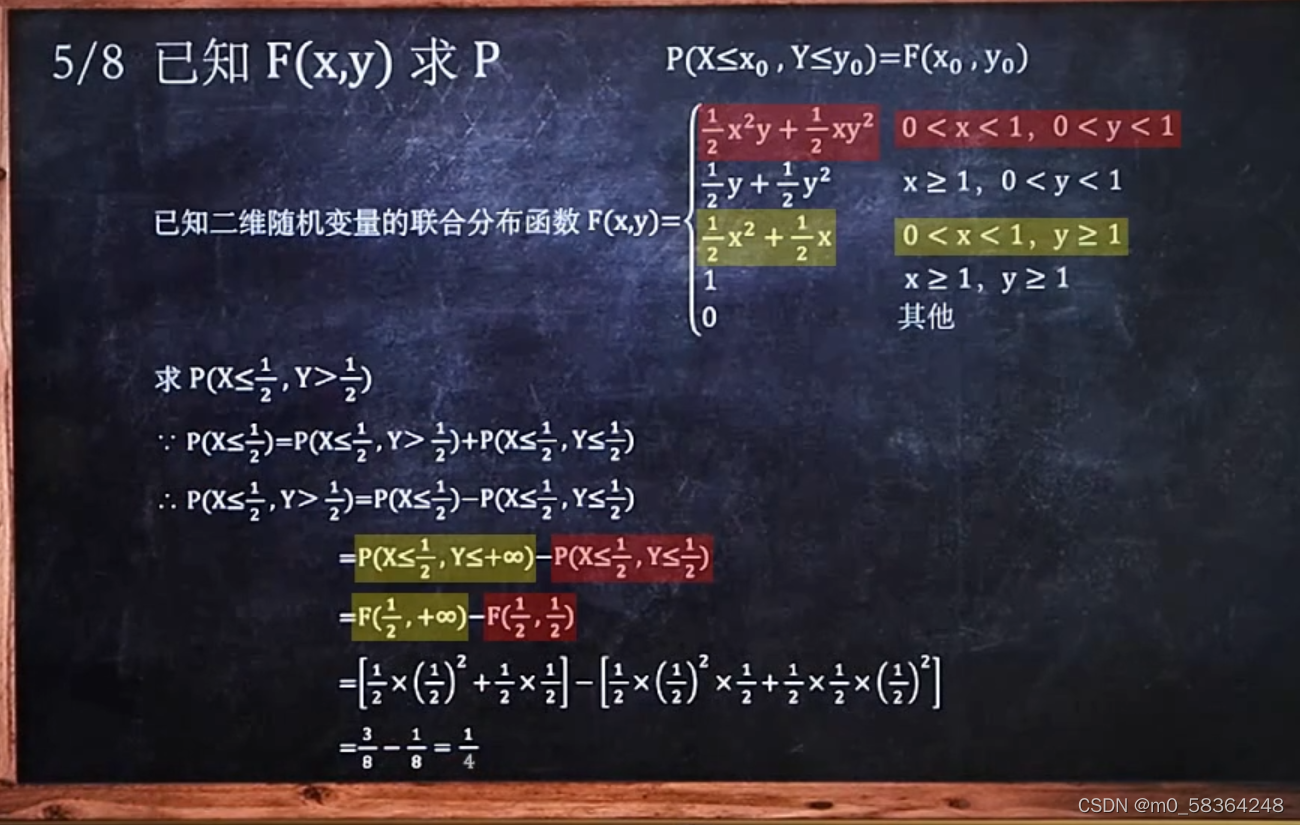 5/8 已知 F(x,y) 求 P
P(X≤x₀ , Y≤y₀)=F(x₀ , y₀)
已知二维随机变量的联合分布函数 F(x,y)={
½x²y + ½xy² 0 < x < 1, 0 < y < 1
½y + ½y² x ≥ 1, 0 < y < 1
½x² + ½x 0 < x < 1, y ≥ 1
1 x ≥ 1, y ≥ 1
0 其他
求 P(X≤½ , Y>½)
∵ P(X≤½)=P(X≤½ , Y> ½)+P(X≤½ , Y≤½)
∴ P(X≤½ , Y> ½)=P(X≤½)−P(X≤½ , Y≤½)
=P(X≤½ , Y≤+∞)−P(X≤½ , Y≤½)
=F(½ , +∞)−F(½ , ½)
=[½×(½)²+½×½]−[½×(½)²×½+½×½×(½)²]
=3/8 − 1/8 = 1/4
CSDN @m0_58364248